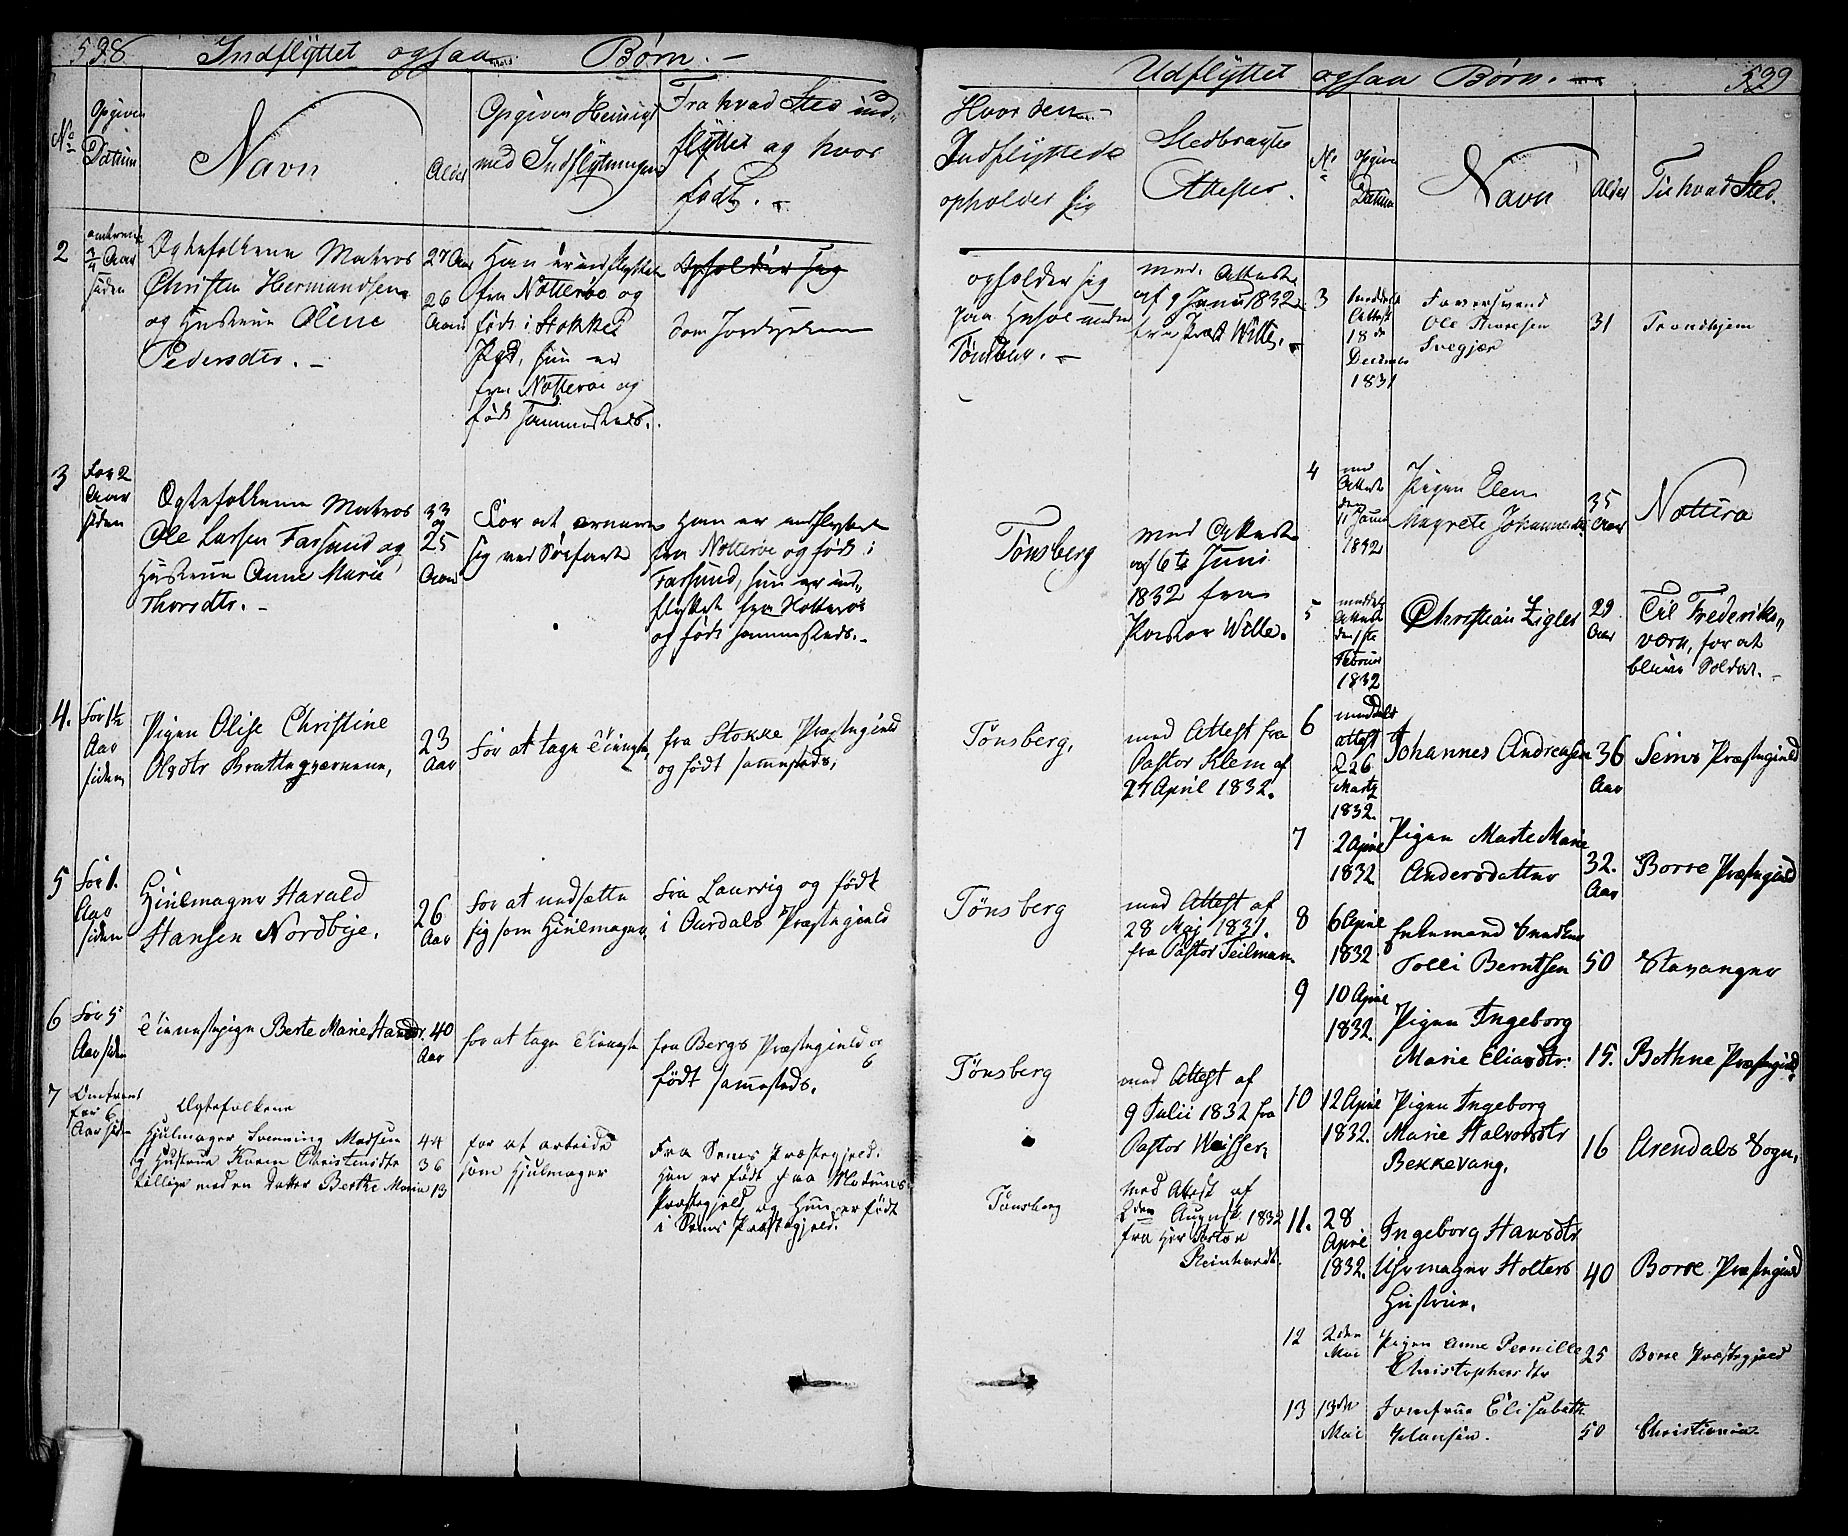 538
Indflÿttet ogsaa Børn. -
No
Opgiven Datum
Navn
Alder
Opgiven Hensigt med Indflytningen
Fra hvad Sted ind-
flyttet og hvor
født. -
Hvor den
Indflyttede
opholder sig
Medbragte
Attester.
2
3/4 Aar
siden
Ægtefolkene Matros
Christen Hermandsen
og Hustrue Olene
Pedersdtr. -
27 Aar
26
Aar
Han er indflyttet
fra Nötteröe og
født i Stokke
Pgd, hun er
fra Nötteröe og
født sammesteds.
Opholder sig
opholder sig
paa Husøe under
Tönsberg. -
med Attest
af 9 Januar 1832
fra Præst Wille. -
3
For 2
Aar
siden
Ægtefolkene Matros
Ole Larsen Farsund og
Hustrue Anne Marie
Thorsdtr. -
33
og
25
Aar
For at ernære
sig ved Søefart
Han er indflyttet
fra Nötteröe og født i
Farsund, hun er ind-
flyttet fra Nötteröe
og født sammesteds. -
Tønsberg
med Attest
af 6te Juni
1832 fra
Pastor Wille.
4.
For 1½
Aar
siden
Pigen Olise Christine
Olsdtr Brattegjernene,
23
Aar
For at tage Tieneste,
fra Stokke Præstegield
og født samesteds,
Tønsberg,
med Attest fra
Pastor Klem af
27 April 1832.
5
For 1.
Aar
siden
Hiulmager Harald
Hansen Nordbye,
26
Aar
For at nedsætte
sig som Hiulmager,
fra Laurvig og født
i Aurdals Præstegield
Tønsberg
med Attest af
28 Maj 1831.
fra Pastor Teilman
6
For 5
Aar siden
Tienestepige Berte Marie Hansdtr.
40
Aar
for at tage Tieneste
fra Bergs Præstegield og
født samesteds.
Tønsberg
med Attest af
9 Julii 1832 fra
Pastor Weisser,
7
Omtrent
for 6
Aar siden
Ægtefolkene
Hjulmager Svenning Madsen
og Hustrue Karen Christensdtr
tillige med en datter Berthe Marie
44
36
13
for at arbeide
som Hjulmager
Fra Sems Præstegjeld.
Han er født paa Modums
Præstegjeld, og Hun er født
i Sems Præstegjeld.
Tønsberg
med Attest af
2den August 1832
fra Herr Pastor
Reinhardt.
539
Udflÿttet ogsaa Børn. -
No
Opgiven
Datum
Navn
Alder
Til hvad Sted.
3
Attest
18de
December
1831
Farversvend
Ole Thoresen
Svegjær
31
Trondhjem
4
med
Attest
den
11 Januar
1832
Pigen Elen
Magrete Johannesdtr
35
Aar
Nötterö
5
meddelt
Attest
den 1ste
Februar
1832
Christian Zigler
29
Aar
Til Frederiks-
værn, for at
blive Soldat. -
6
meddelt
Attest
26
Martz
1832.
Johannes Andreasen
36
Aar
Sems Præstegield
7
2 April
1832
Pigen Marte Marie
Andersdatter
32.
Aar
Borre Præstegield
8
6 April
1832
Enkemand Snedker
Tolli Berntsen
50
Stavanger
9
10 April
1832.
Pigen Ingeborg
Marie Eliasdtr.
15.
Bothne Præstegield
10
12 April
1832.
Pigen Ingeborg
Marie Halvorsdtr
Bekkevang,
16
Arendals Sogn,
11.
28
April
1832.
Ingeborg Hansdtr
Uhrmager Holters
Hustrue,
40
Borre Præstegield
12
2den
Mai
Pigen Anne Pernille
Christophersdtr
25
Borre Præstegjeld
13
13de
Mai
Jomfrue Elisabeth
Hansen.
50
Christiania